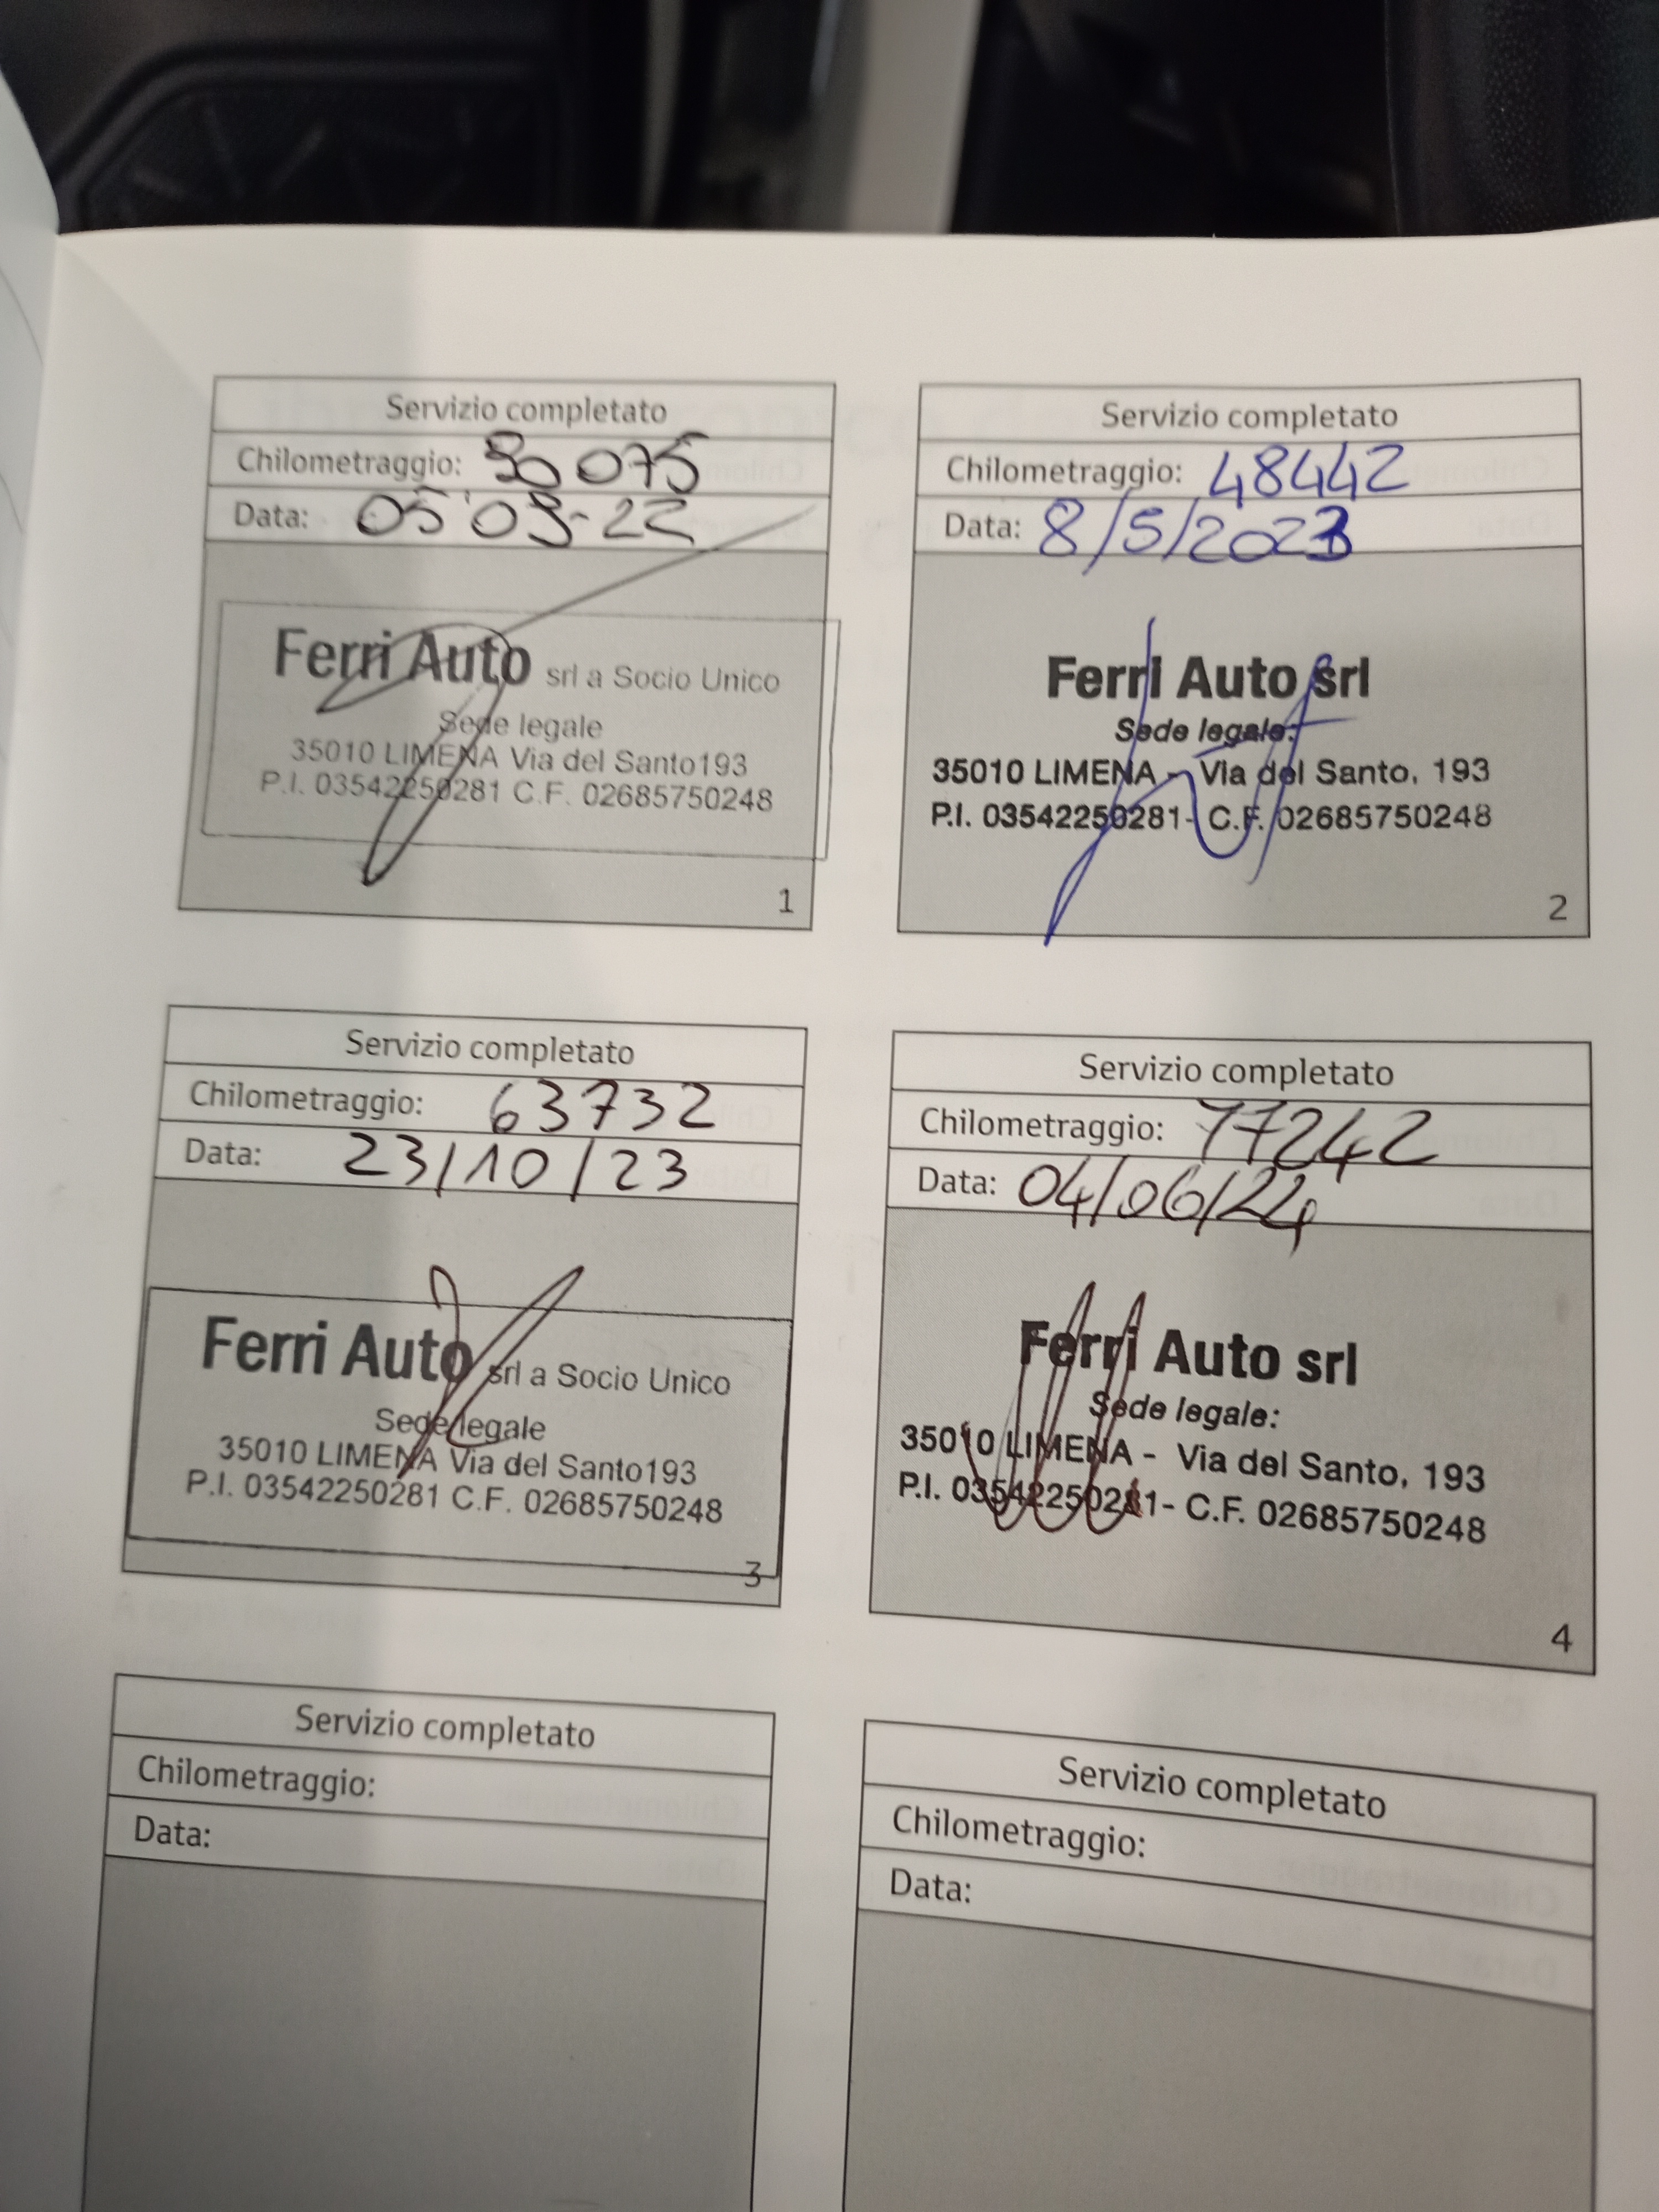 Servizio completato
Chilometraggio: 30 075
Data: 05-09-22
Ferri Auto srl a Socio Unico
Sede legale
35010 LIMENA Via del Santo193
P.I. 03542250281 C.F. 02685750248
1
Servizio completato
Chilometraggio: 48442
Data: 8/5/2023
Ferri Auto srl
Sede legale:
35010 LIMENA - Via del Santo, 193
P.I. 03542250281- C.F. 02685750248
2
Servizio completato
Chilometraggio: 63732
Data: 23/10/23
Ferri Auto srl a Socio Unico
Sede legale
35010 LIMENA Via del Santo193
P.I. 03542250281 C.F. 02685750248
3
Servizio completato
Chilometraggio: 77242
Data: 04/06/24
Ferri Auto srl
Sede legale:
35010 LIMENA - Via del Santo, 193
P.I. 03542250281- C.F. 02685750248
4
Servizio completato
Chilometraggio:
Data:
Servizio completato
Chilometraggio:
Data: